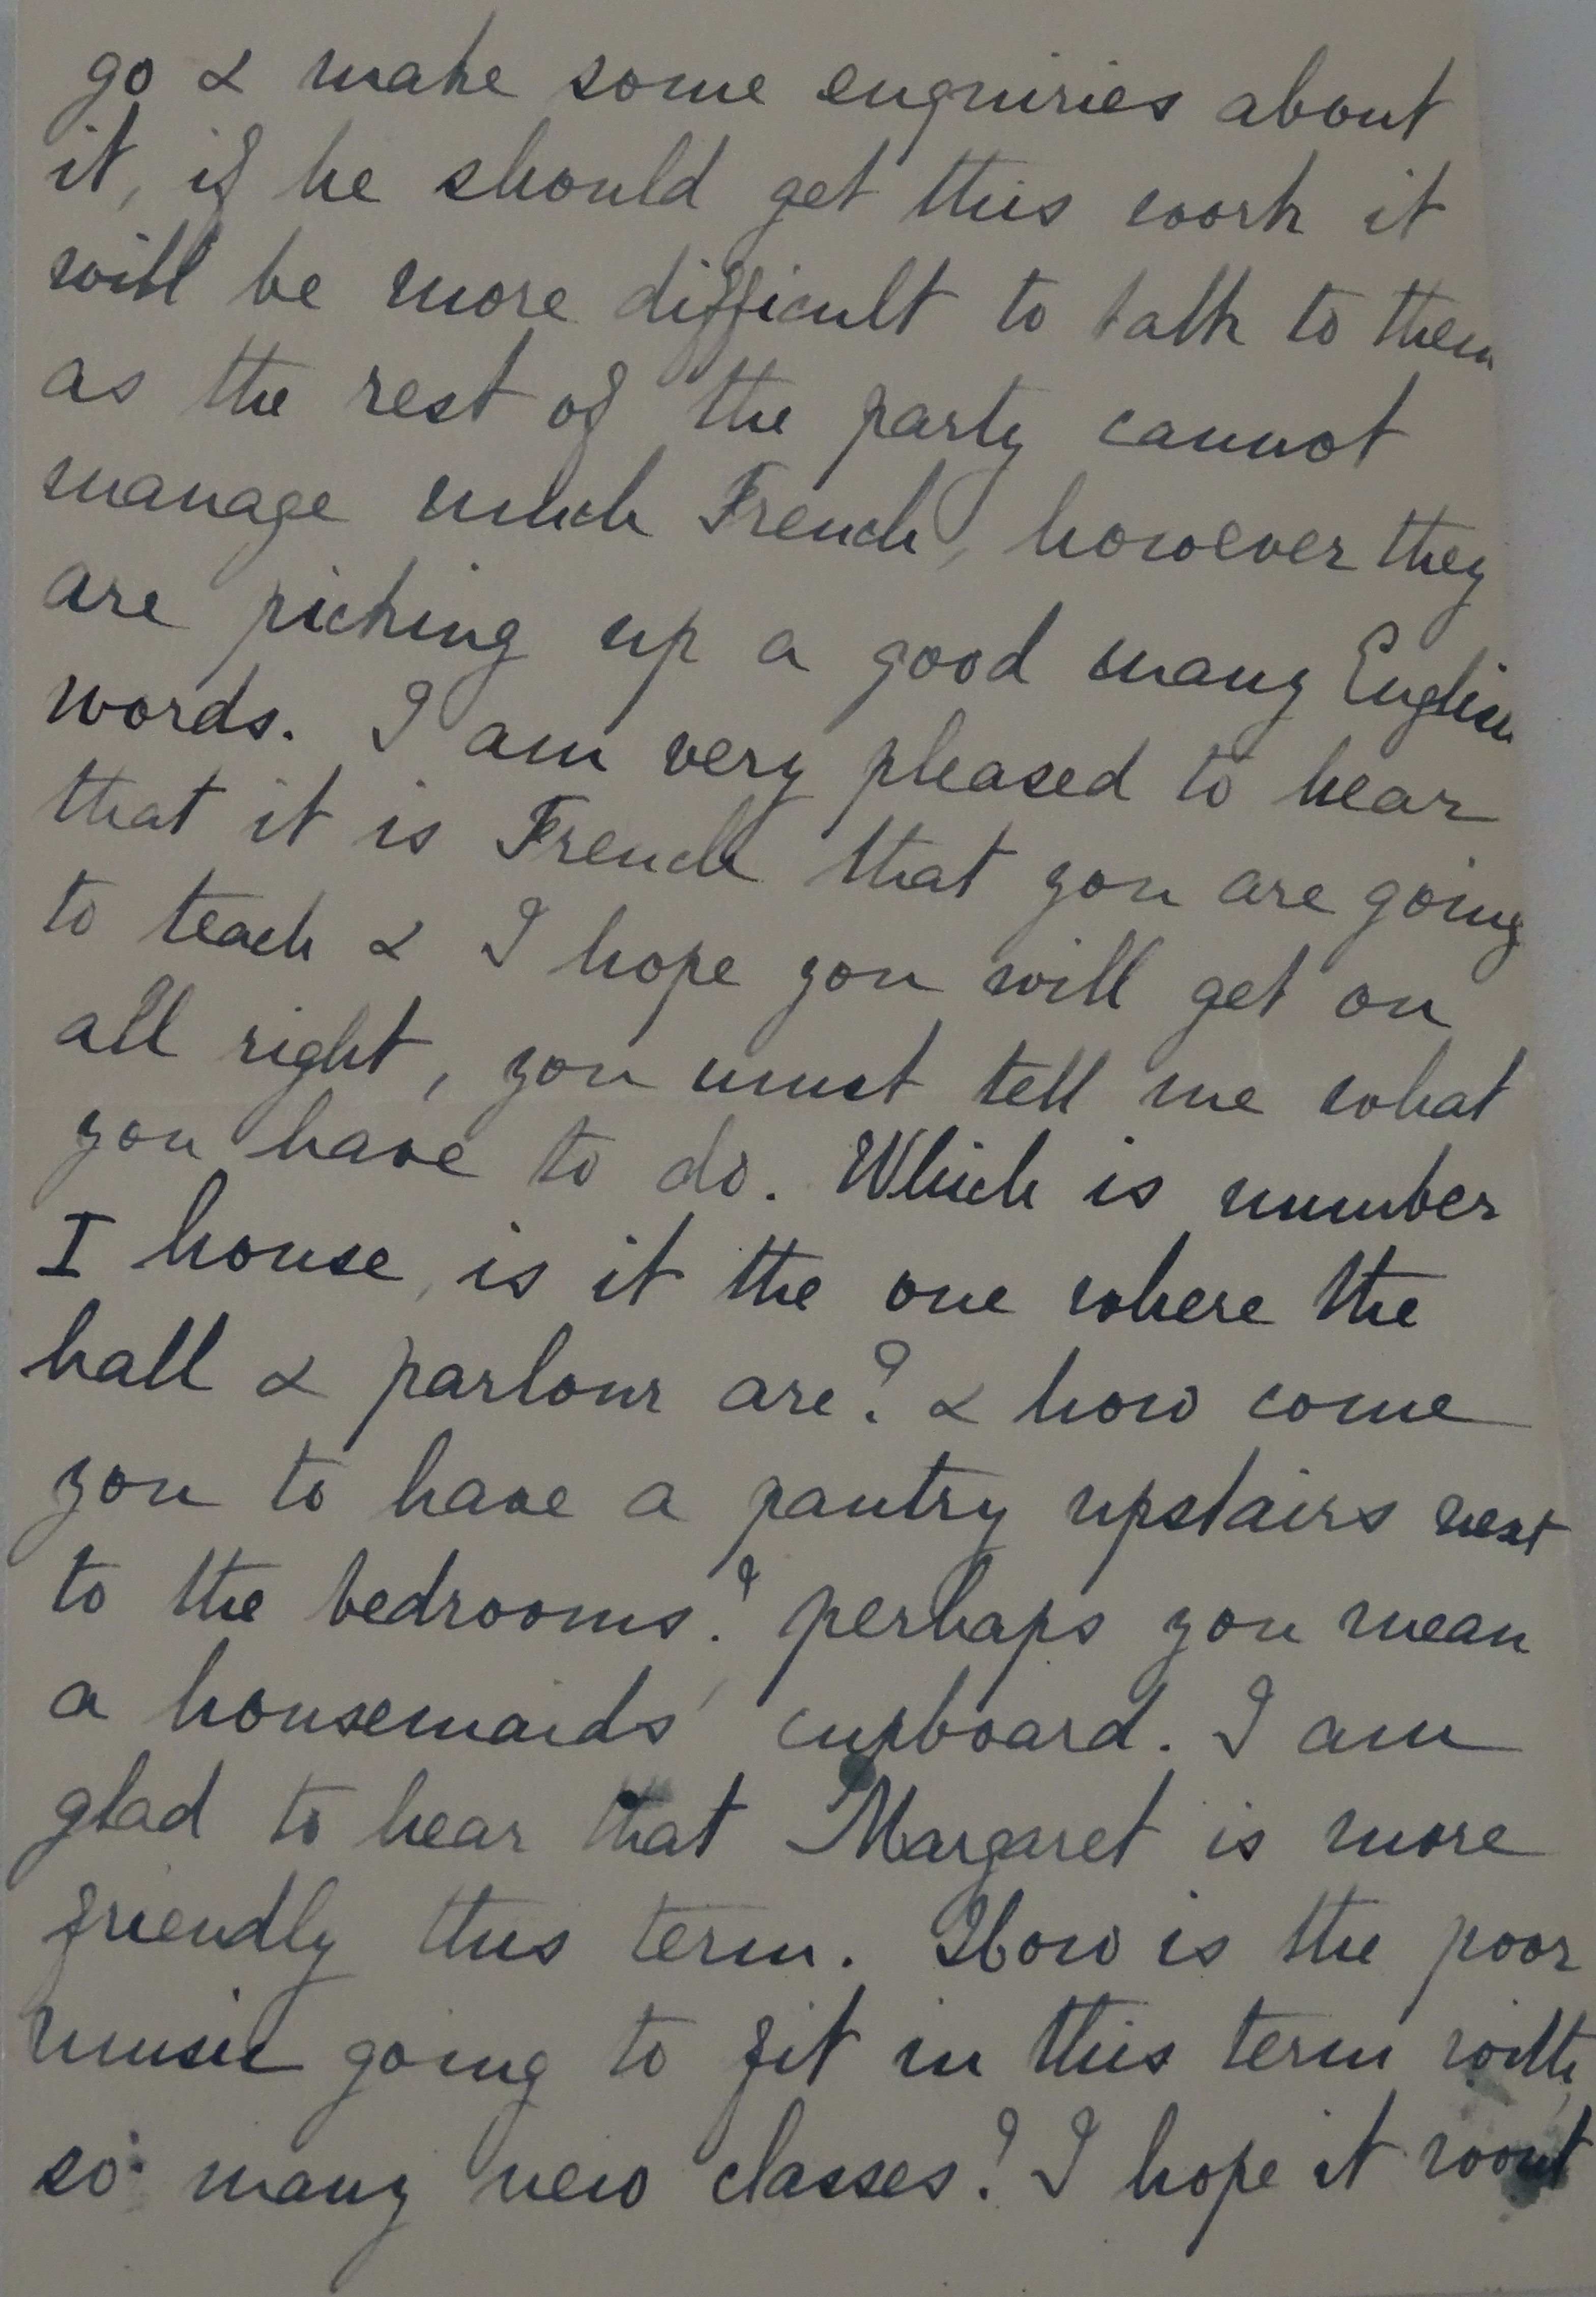 go & make some enquiries about
it, if he should get this work it
will be more difficult to talk to them
as the rest of the party cannot
manage much French, however they
are picking up a good many English
words. I am very pleased to hear
that it is French that you are going
to teach & I hope you will get on
all right, you must tell me what
you have to do. Which is number
I house, is it the one where the
hall & parlour are? & how come
you to have a pantry upstairs next
to the bedrooms? perhaps you mean
a housemaids' cupboard. I am
glad to hear that Margaret is more
friendly this term. How is the poor
music going to fit in this term with
so many new classes? I hope it wont